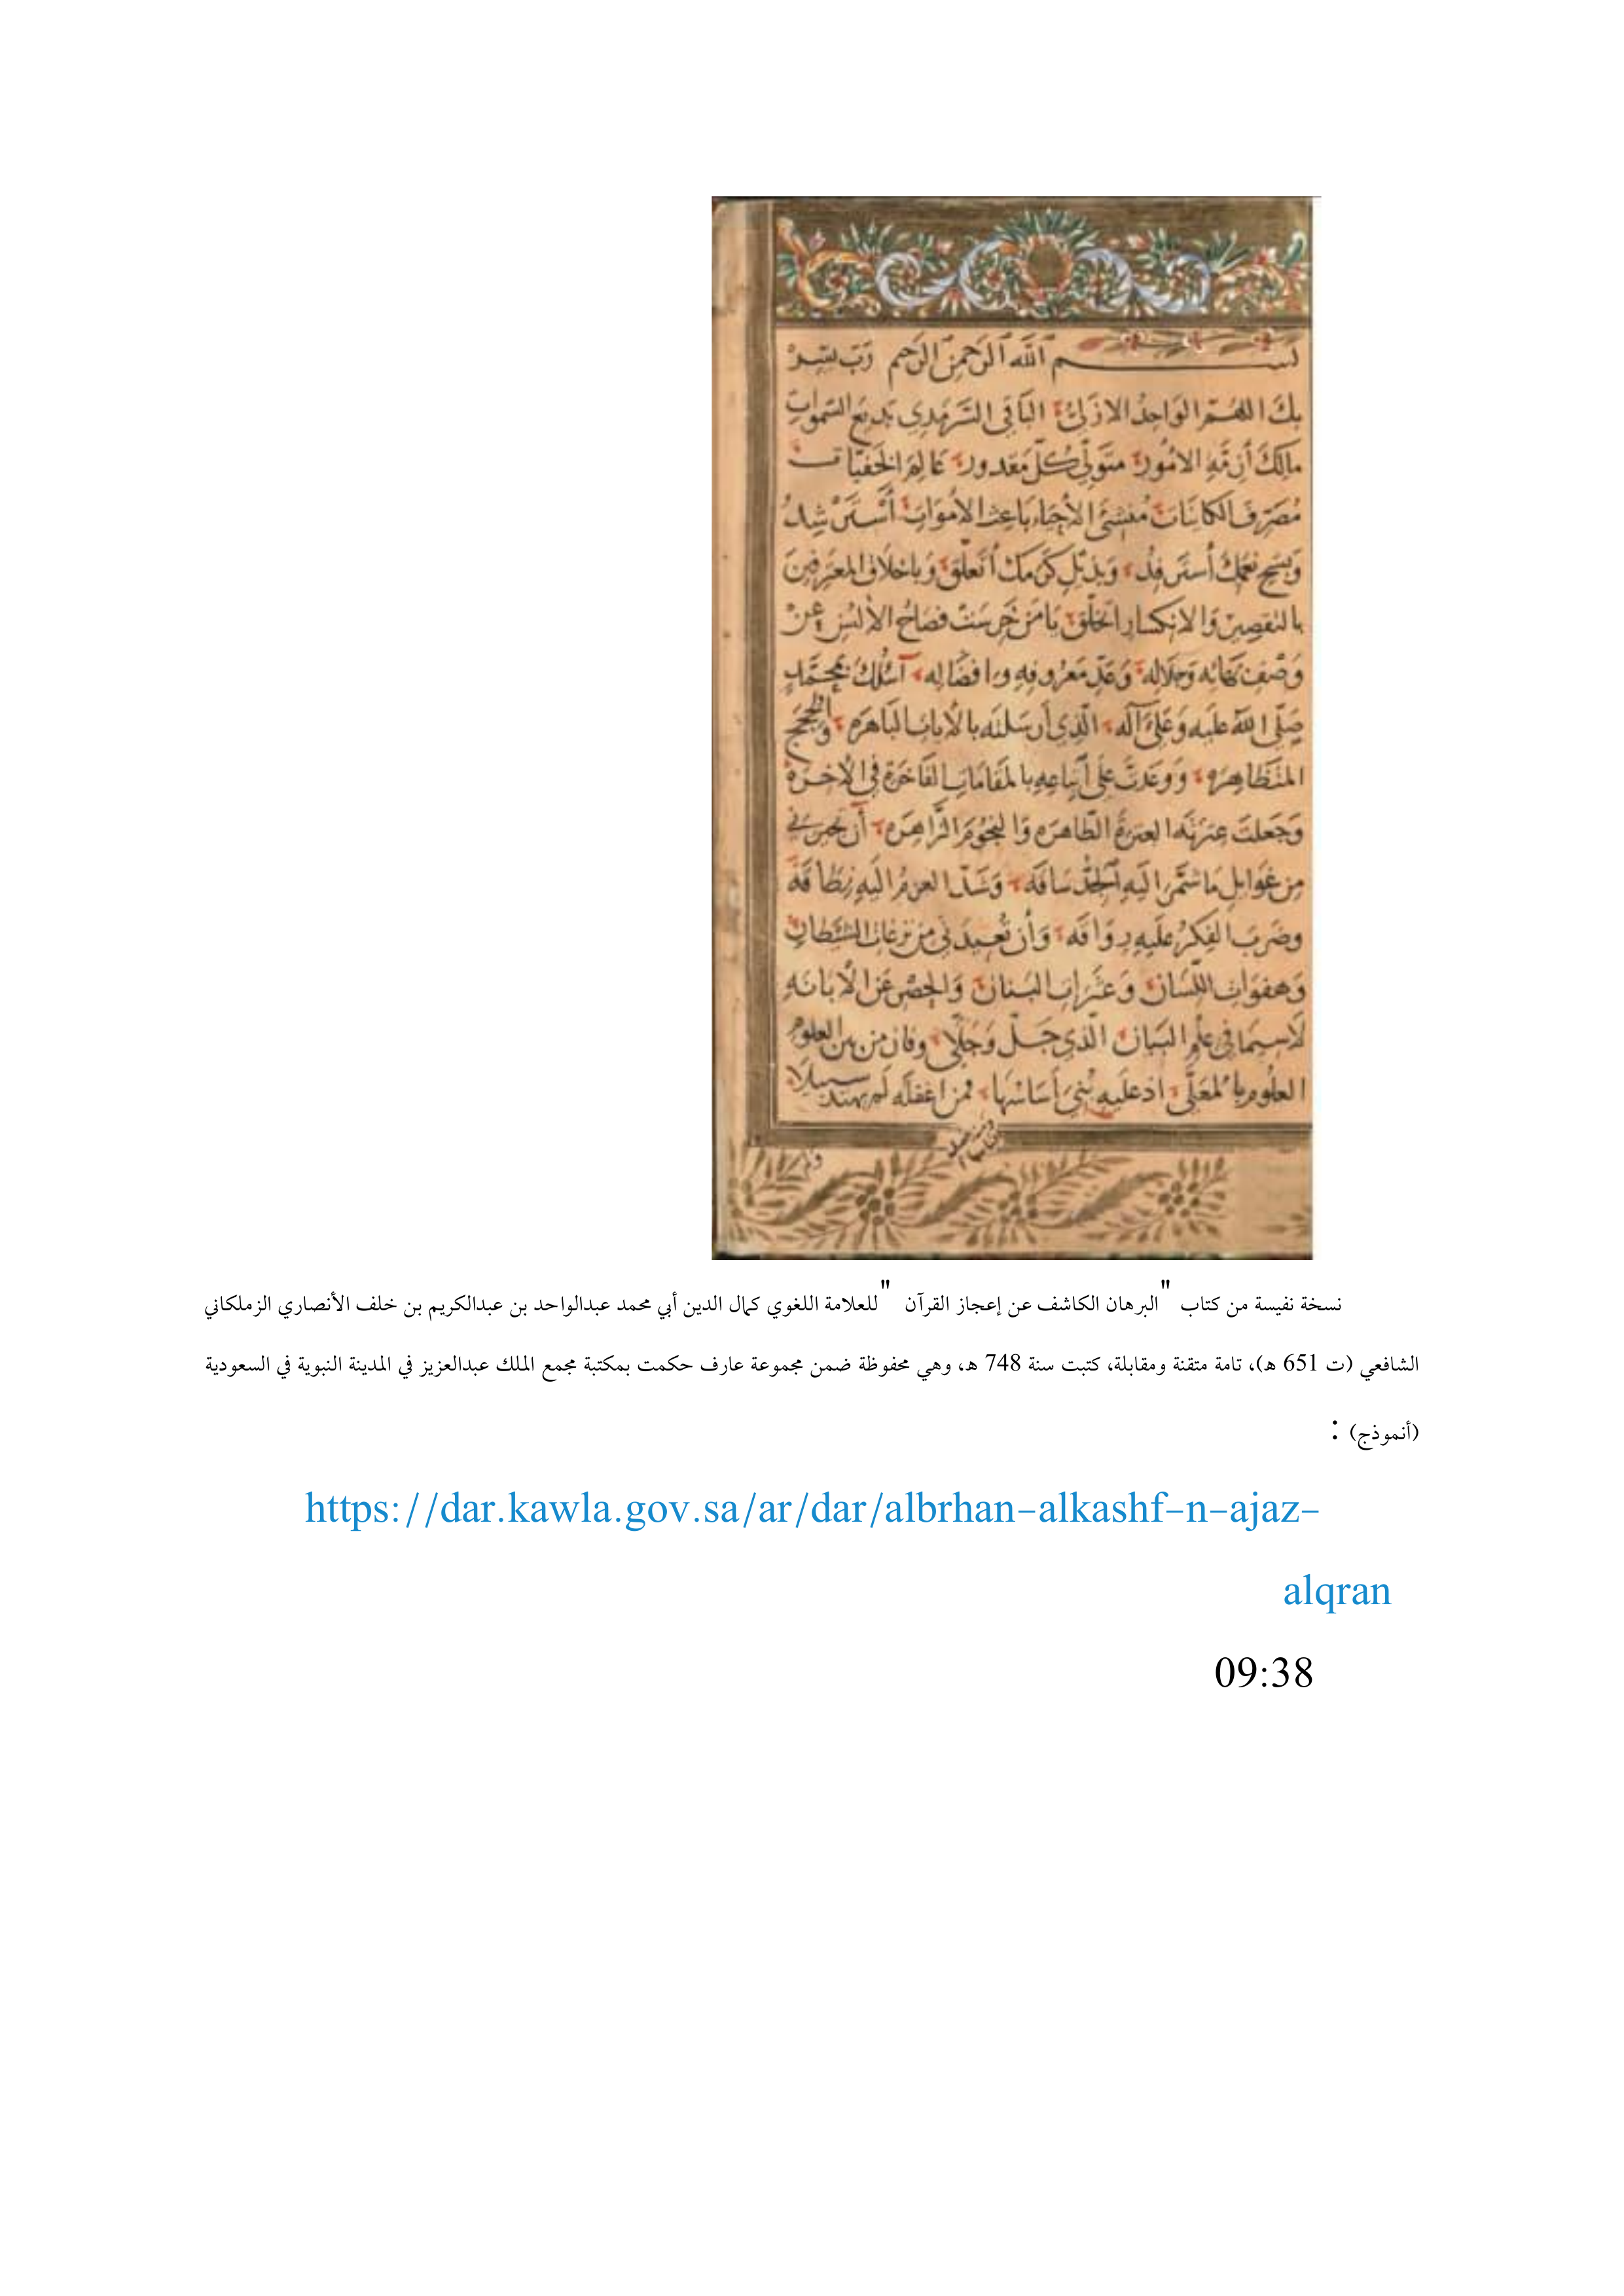 بســـــم الله الرحمن الرحيم رَبِّ يَسِّرْ
بِكَ اللهُمَّ الوَاحِدُ الازَلِيُّ البَاقِي السَّرمَدِي بَدِيعَ السَّمواتِ
مالِكَ أزِمَّةِ الامُورِ مُتَوَلِّي كُلِّ مَقدورِ عَالِمَ الخَفيَّاتِ
مُصَرِّفَ الكائنَاتِ مُنشِئَ الأحيَاءِ بَاعِثَ الأموَاتِ أَسْتَرْشِدُ
أستَرفِدُ وَبِذَيْلِ كَرَمِكَ أتَعلَّقُ وَباخلاقِ المعترفينَ
بالتقصيرِ وَالانكسارِ اتخَلَّقُ يَا مَنْ خَرِسَتْ فصَاحُ الألسُنِ عَنْ
وَصْفِ وَجَلَالِه وَعَدِّ مَعرُوفِهِ وافضَالِه أسْئَلُكَ بمُحَمَّدٍ
صَلَّى اللهُ عَلَيهِ وَعَلَى آلِه الَّذِي أرسَلتَه بالأياتِ البَاهِرَهِ وَالحُجَجِ
المتظاهِرَهِ وَوَعَدتَ عَلَى اتباعِهِ بالمقَامَاتِ الفَاخِرَةِ فِي الأخِرَةِ
وَجَعلتَ عِترَتَه العِترَةَ الطَّاهِرَه وَالنجُومَ الزَّاهِرَه أن تجيرَني
مِن غَوايلِ مَا شَمَّرَ إلَيهِ الجِدُّ سَاقَه وَشَدَّ العَزمُ إلَيهِ نِطَاقَهُ
وضَرَبَ الفِكرُ عَلَيهِ رِوَاقَه وَأن تُعِيذَنِي مِن نَزغَاتِ الشَّيطانِ
وَهفوَاتِ اللِّسَانِ وَعَثَرَاتِ البَنانِ وَالحصَرِ عَنِ الأبَانَهِ
لَاسِيَّمَا فِي عِلْمِ البَيَانِ الَّذِي جَلَّ وَجَلَّى وفازَ مِن بَينِ العلومِ
العلُومِ بالمُعَلَّى اذ عَلَيهِ بُنِيَ أسَاسُهَا فمَن اغفلَه لَم يهتدِ سبيلًا
نسخة نفيسة من كتاب "البرهان الكاشف عن إعجاز القرآن "للعلامة اللغوي كمال الدين أبي محمد عبدالواحد بن عبدالكريم بن خلف الأنصاري الزملكاني
الشافعي (ت 651 هـ)، تامة متقنة ومقابلة، كتبت سنة 748 هـ، وهي محفوظة ضمن مجموعة عارف حكمت بمكتبة مجمع الملك عبدالعزيز في المدينة النبوية في السعودية
(أنموذج) :
https://dar.kawla.gov.sa/ar/dar/albrhan-alkashf-n-ajaz-
alqran
09:38